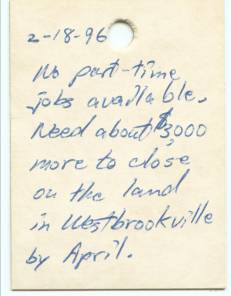 2-18-96
No part-time
jobs available.
Need about $3,000
more to close
on the land
in Westbrookville
by April.